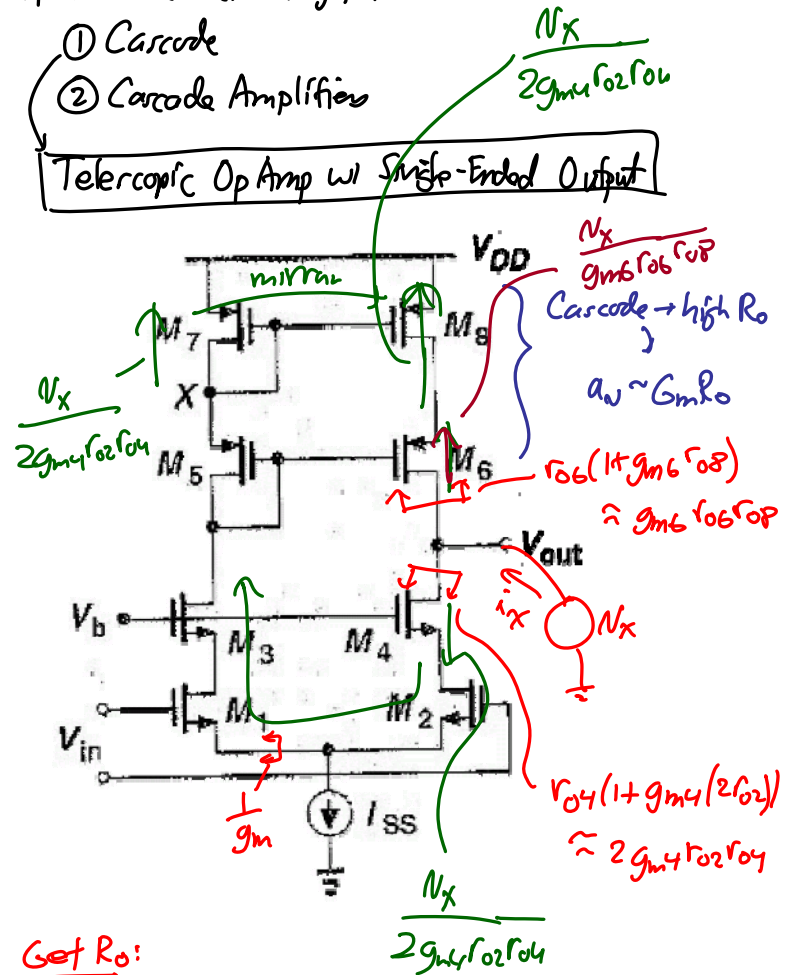 ① Cascode
② Cascode Amplifiers
Telescopic Op Amp w/ Single-Ended Output
Nx
2gm4ro2ro4
VDD
mirror
Nx
gm6ro6ro8
Cascode → high Ro
av ~ GmRo
M7
M8
Nx
2gm4ro2ro4
X
M5
M6
ro6(1+gm6ro8)
≈ gm6ro6ro8
Vout
ix
Nx
Vb
M3
M4
M1
M2
Vin
1
gm
ISS
ro4(1+gm4(2ro2))
≈ 2gm4ro2ro4
Nx
2gm4ro2ro4
Get Ro: